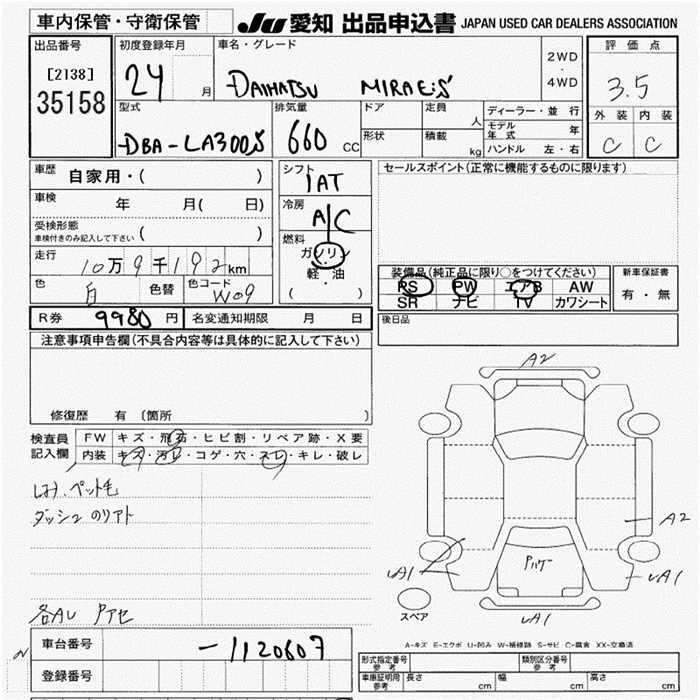 車内保管・守衛保管
JU 愛知 出品申込書 JAPAN USED CAR DEALERS ASSOCIATION
出品番号
[2138]
35158
初度登録年月
24 月
車名・グレード
DAIHATSU MIRAE:S
2WD
・
4WD
評価点
3.5
外装 内装
C C
型式
-DBA-LA300S
排気量
660 CC
ドア
形状
定員 人
積載 kg
ディーラー・並行
モデル年式 年
ハンドル 左・右
車歴 自家用・( )
車検 年 月( 日)
受検形態
車検付きのみ記入して下さい ( )
走行
10万9千192km
色 白 色替 色コード W09
シフト
IAT
冷房
A/C
燃料
ガソリン
軽・油
( )
セールスポイント(正常に機能するものに限ります)
装備品(純正品に限り○をつけてください)
PS PW エアB AW
SR ナビ TV カワシート
新車保証書
有・無
R券 9980 円 名変通知期限 月 日
後日品
注意事項申告欄(不具合内容等は具体的に記入して下さい)
修復歴 有 (箇所 )
検査員
記入欄
FW キズ・飛石・ヒビ割・リペア跡・X要
内装 キズ・汚レ・コゲ・穴・スレ・キレ・破レ
ペット毛
ダッシュ
各AU
A2
A2
UA1
UA1
UA1
スペア
A-キズ E-エクボ U-凹み W-補修跡 S-サビ C-腐食 XX-交換済
車台番号 -1120607
登録番号
形式指定番号
参考
類別区分番号
参考
車庫証明用
参考
長さ cm 幅 cm 高さ cm